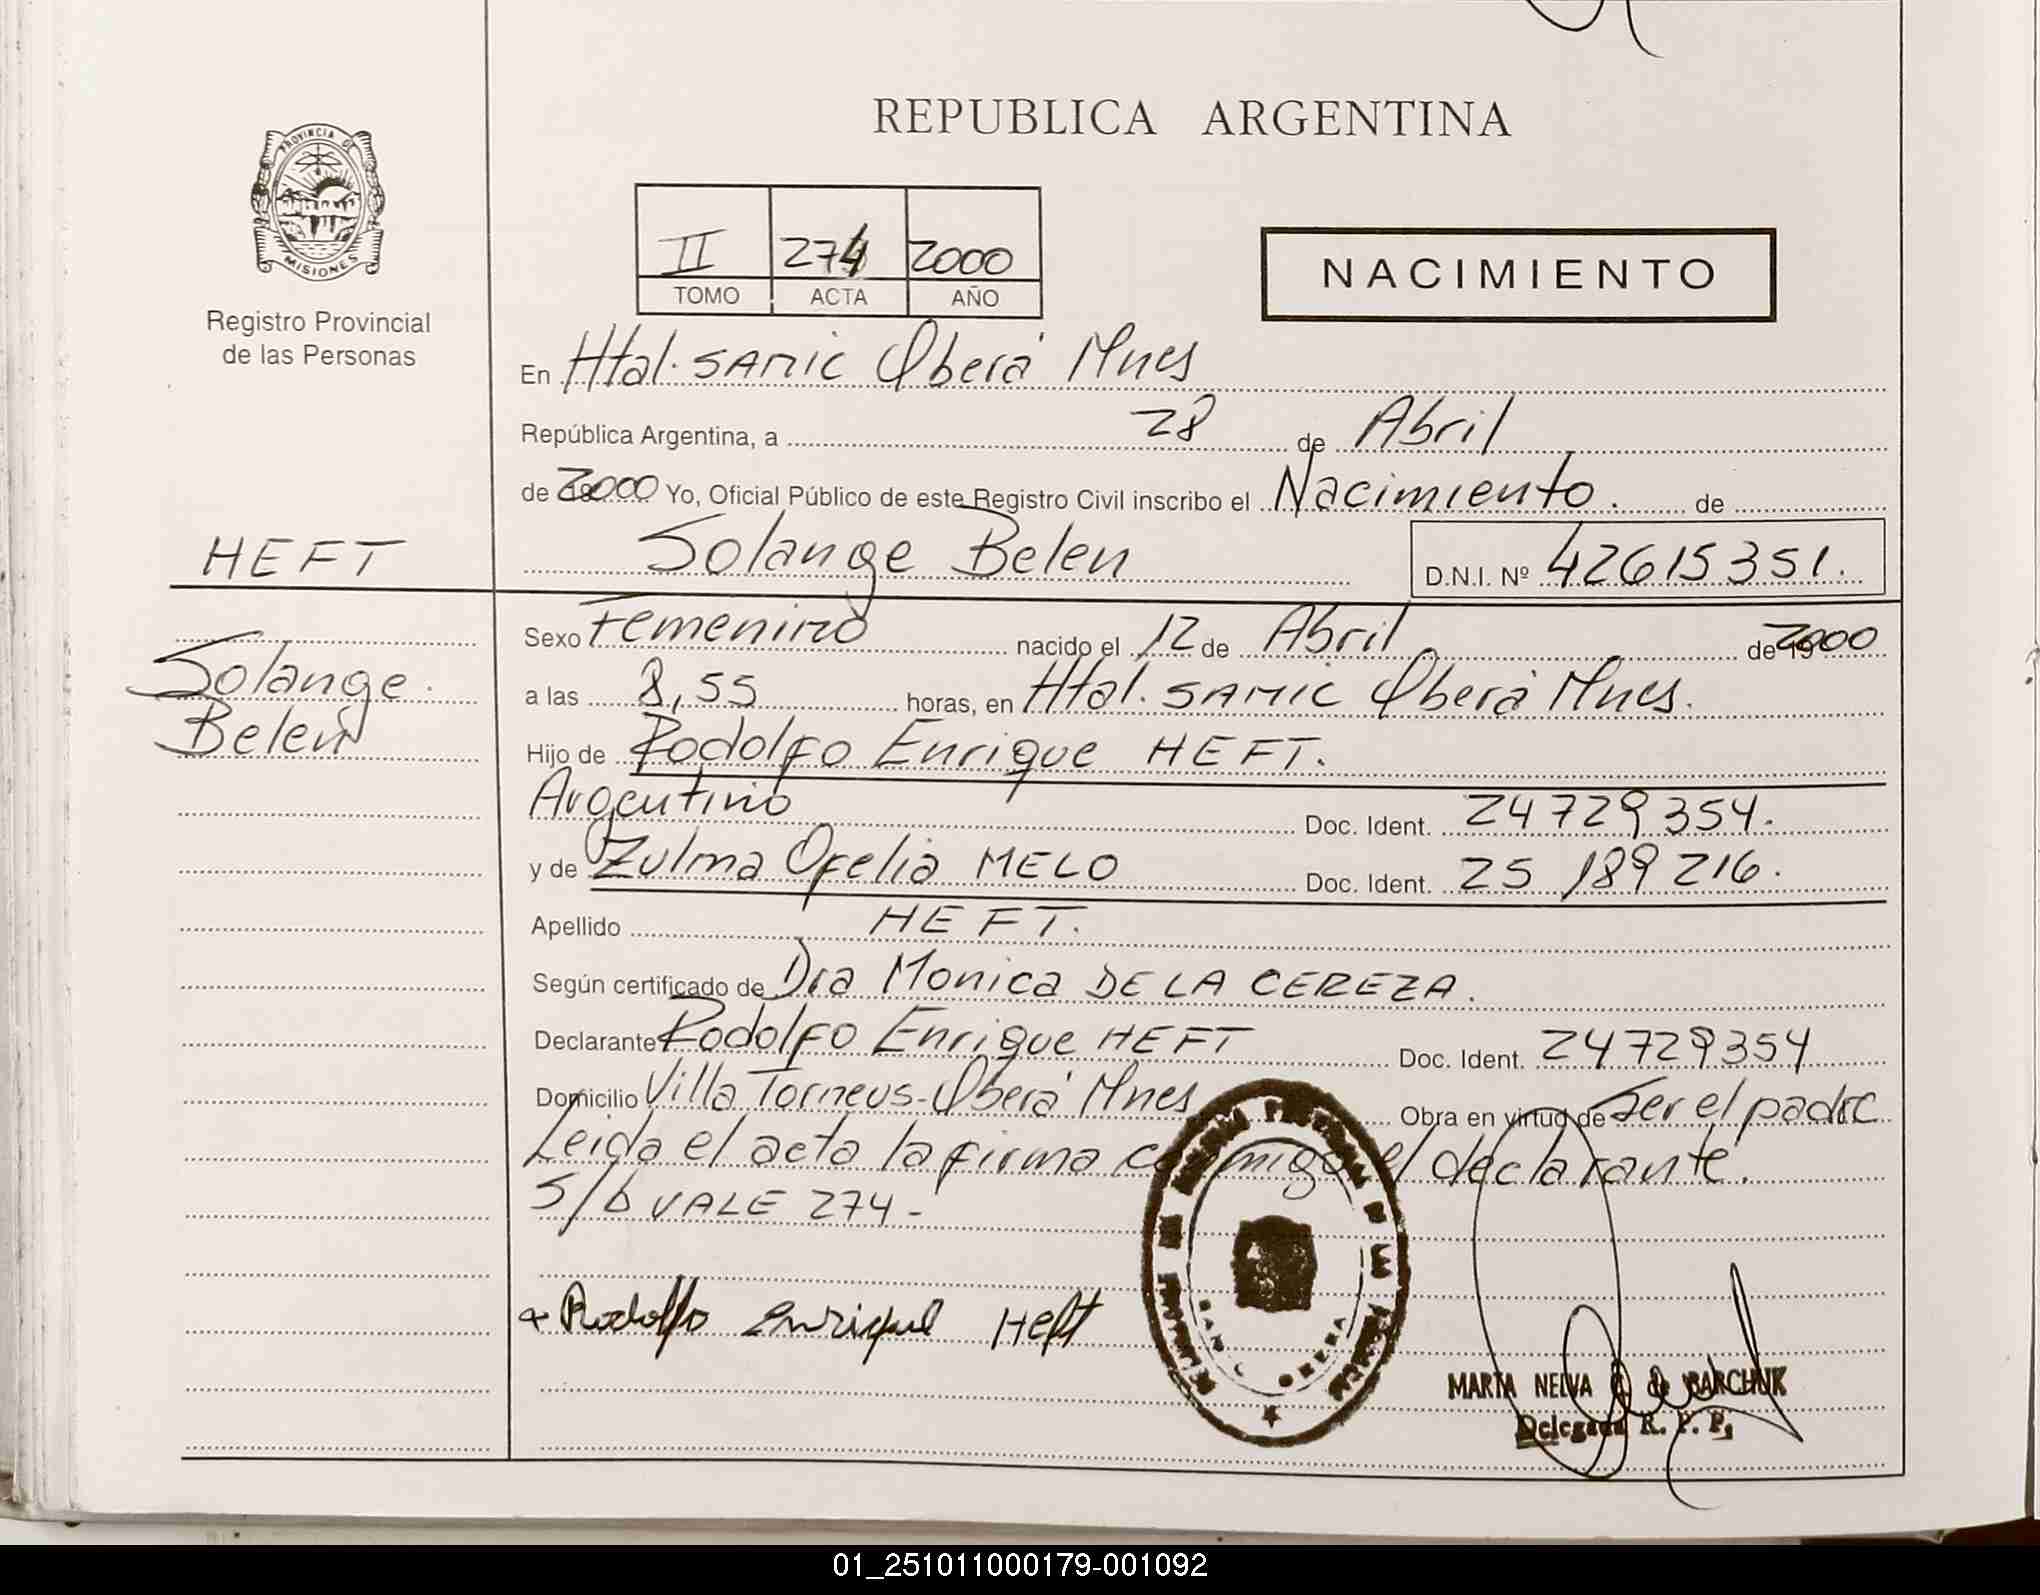 REPUBLICA ARGENTINA
PROVINCIA DE
MISIONES
Registro Provincial
de las Personas
II 274 2000
TOMO ACTA AÑO
NACIMIENTO
En Htal. SAMIC Oberá Mnes
República Argentina, a 28 de Abril
de 2000 Yo, Oficial Público de este Registro Civil inscribo el Nacimiento. de
HEFT
Solange Belen D.N.I. Nº 42615351.
Solange
Belen
Sexo Femenino nacido el 12 de Abril de 2000
a las 8,55 horas, en Htal. SAMIC Oberá Mnes.
Hijo de Rodolfo Enrique HEFT.
Argentino Doc. Ident. 24729354.
y de Zulma Ofelia MELO Doc. Ident. 25 189 216.
Apellido HEFT.
Según certificado de Dra Monica DE LA CEREZA.
Declarante Rodolfo Enrique HEFT Doc. Ident. 24729354
Domicilio Villa Torneus - Oberá Mnes Obra en virtud de Ser el padre
Leida el acta la firma conmigo el declarante.
S/b VALE 274 -
Rodolfo Enrique Heft
OBERA
MARTA NELVA de BARCHUK
Delegada R. P. P.
01_251011000179-001092